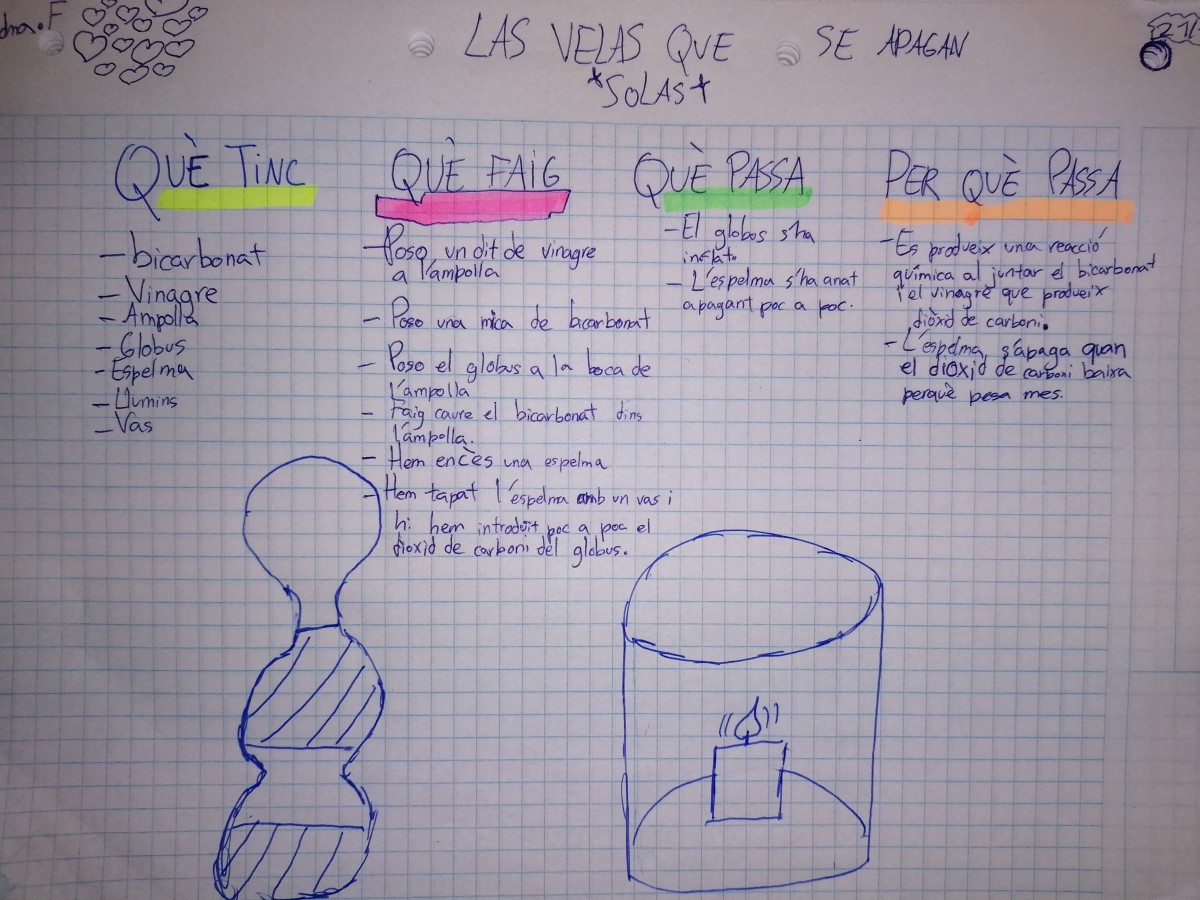 LAS VELAS QUE SE APAGAN
*SOLAS*
QUÈ TINC
- bicarbonat
- Vinagre
- Ampolla
- Globus
- Espelma
- Llumins
- Vas
QUÈ FAIG
- Poso un dit de vinagre
a l'ampolla
- Poso una mica de bicarbonat
- Poso el globus a la boca de
l'ampolla
- Faig caure el bicarbonat dins
l'ampolla.
- Hem encès una espelma
- Hem tapat l'espelma amb un vas i
hi hem introduït poc a poc el
dioxid de carboni del globus.
QUÈ PASSA
- El globus s'ha
inflat.
- L'espelma s'ha anat
apagant poc a poc.
PER QUÈ PASSA
- Es produeix una reacció
química al juntar el bicarbonat
i el vinagre que produeix
diòxid de carboni.
- L'espelma s'apaga quan
el dioxid de carboni baixa
perquè pesa mes.